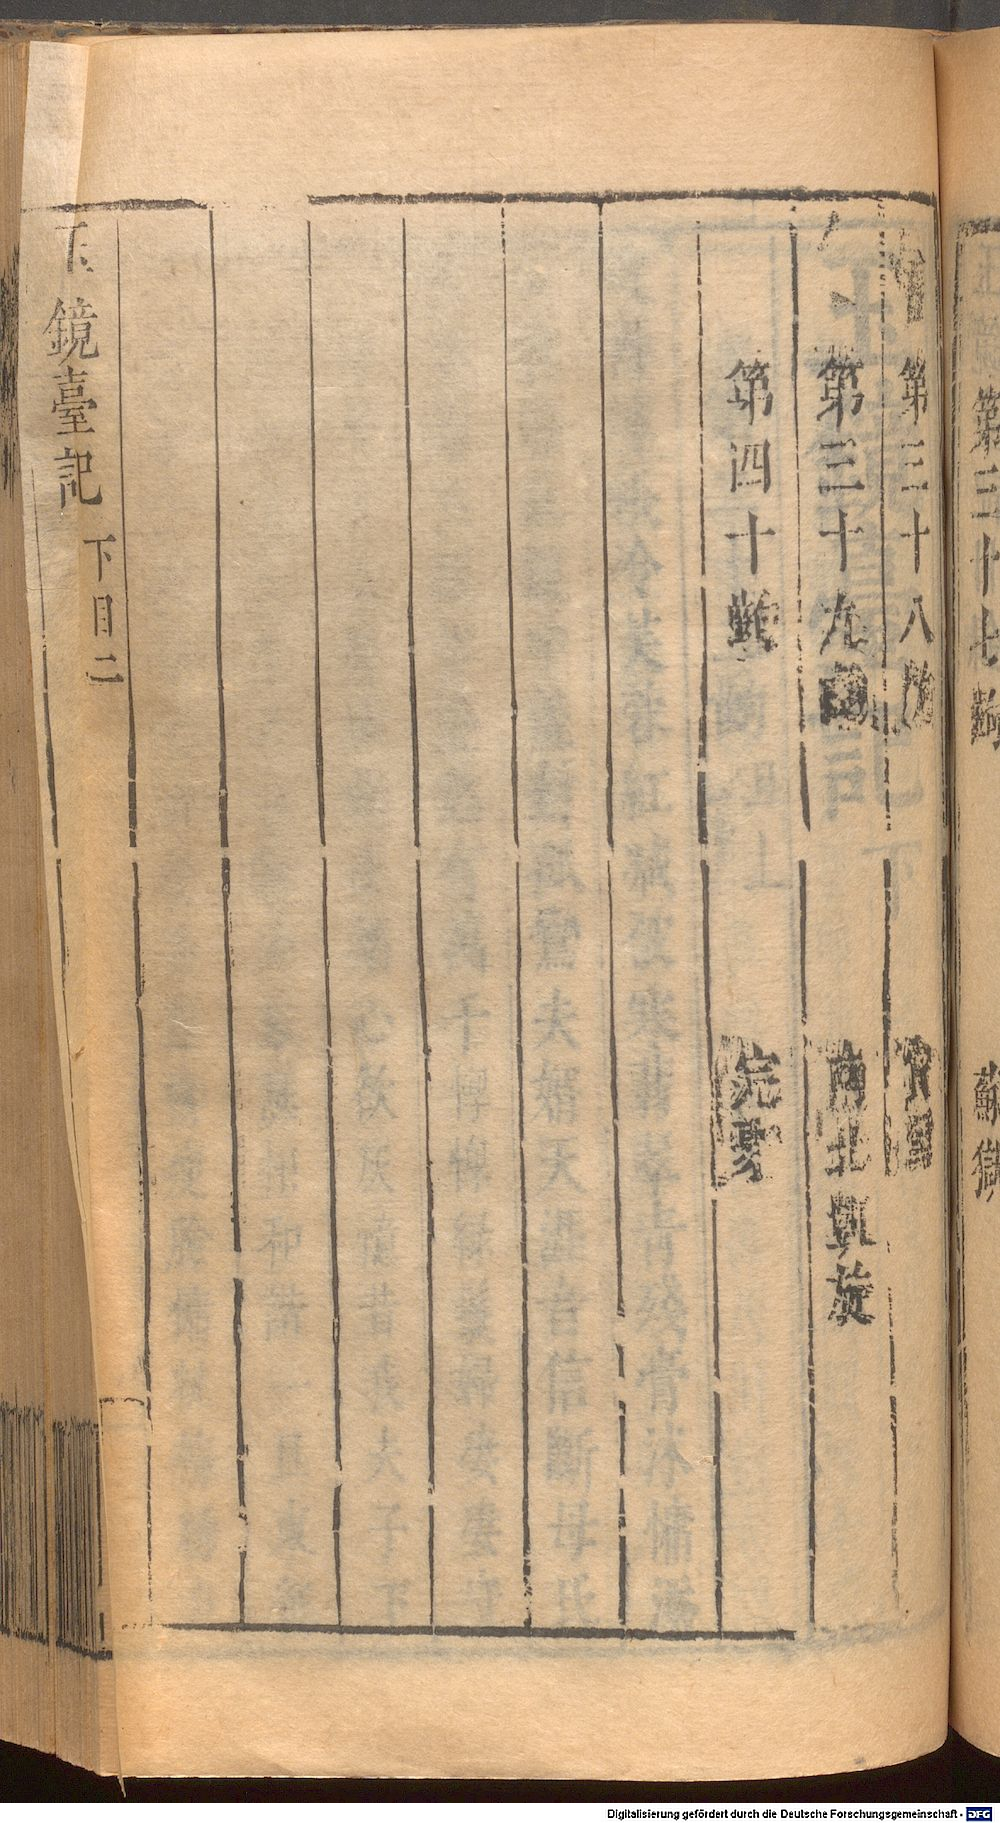 第三十七齣　蘇獄
第三十八齣
第三十九齣　南北凱旋
第四十齣　完聚
玉鏡臺記　下目二
Digitalisierung gefördert durch die Deutsche Forschungsgemeinschaft - DFG